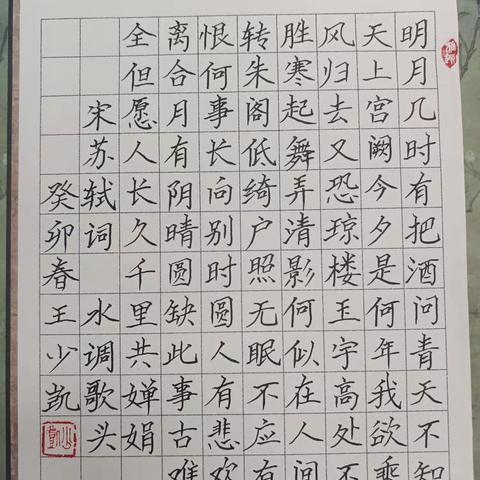 明月几时有把酒问青天不知
天上宫阙今夕是何年我欲乘
风归去又恐琼楼玉宇高处不
胜寒起舞弄清影何似在人间
转朱阁低绮户照无眠不应有
恨何事长向别时圆人有悲欢
离合月有阴晴圆缺此事古难
全但愿人长久千里共婵娟
宋苏轼词 水调歌头
癸卯春王少凯